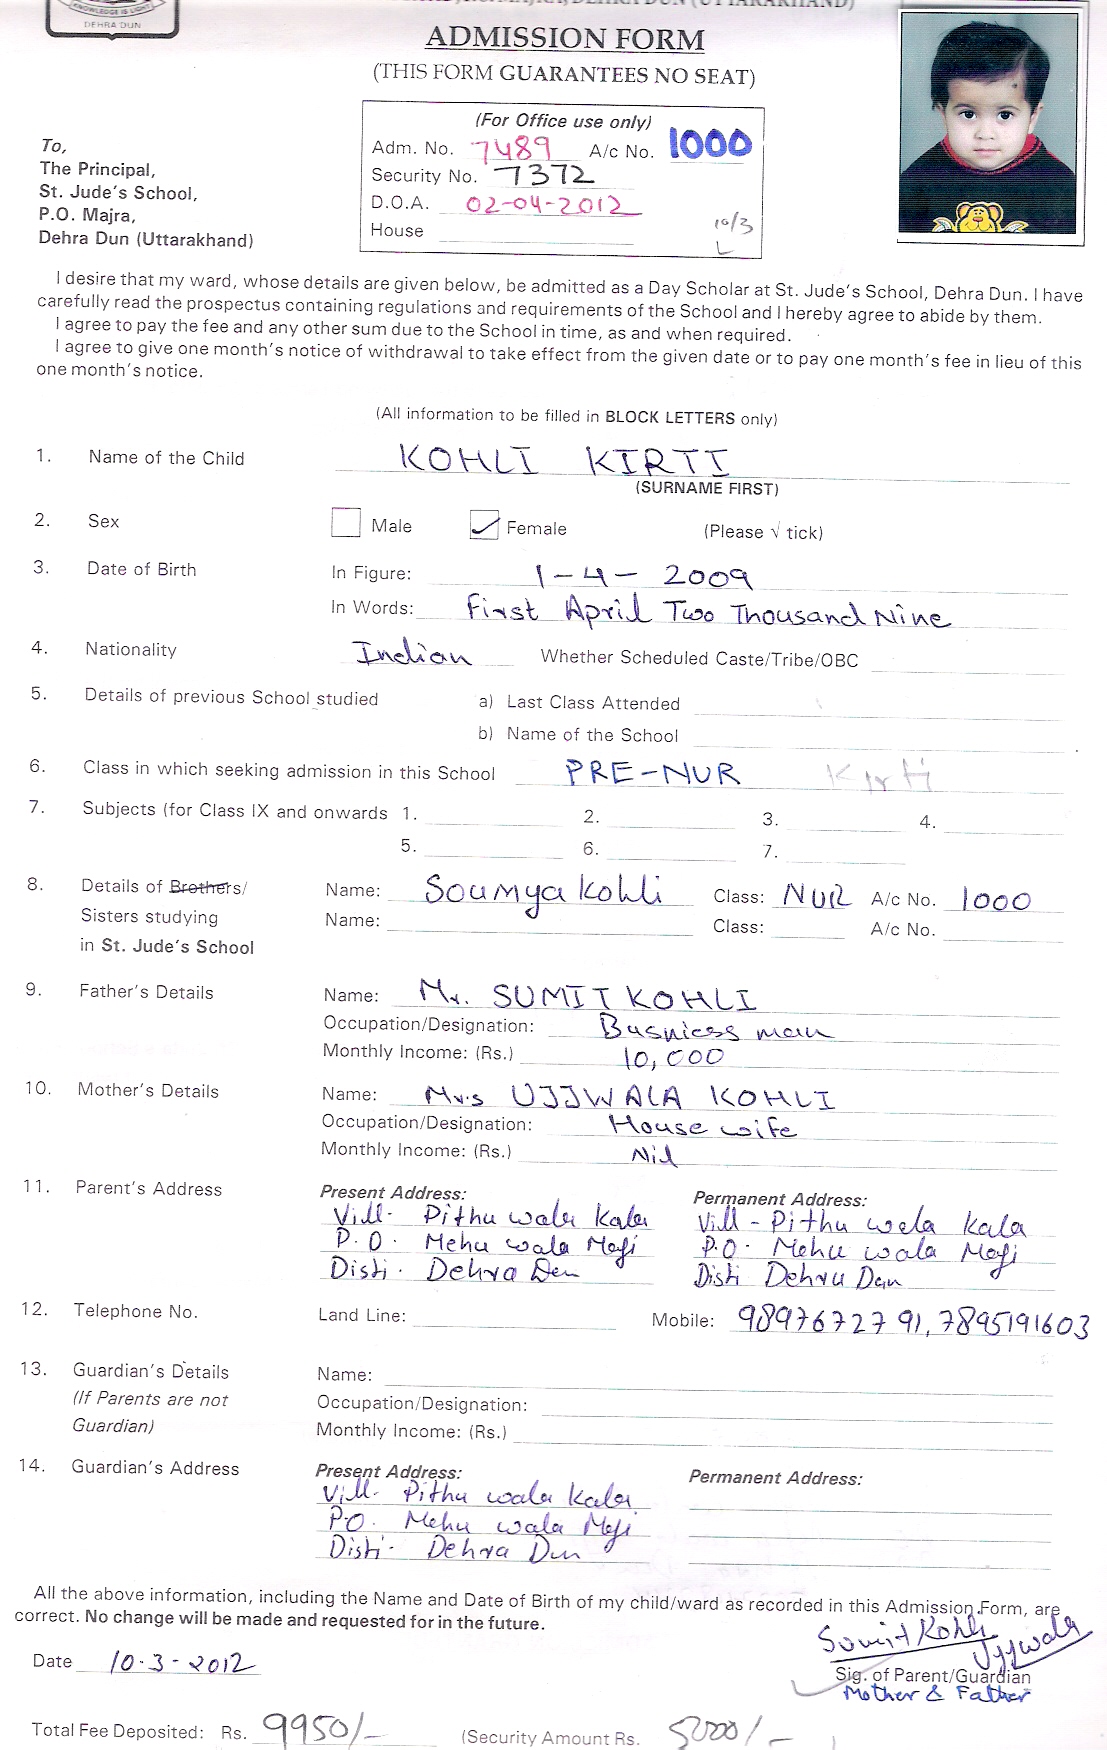 KNOWLEDGE IS LIGHT
DEHRA DUN
ADMISSION FORM
(THIS FORM GUARANTEES NO SEAT)
(For Office use only)
Adm. No. 7489 A/c No. 1000
Security No. 7372
D.O.A. 02-04-2012
House
10/3
To,
The Principal,
St. Jude's School,
P.O. Majra,
Dehra Dun (Uttarakhand)
I desire that my ward, whose details are given below, be admitted as a Day Scholar at St. Jude's School, Dehra Dun. I have
carefully read the prospectus containing regulations and requirements of the School and I hereby agree to abide by them.
I agree to pay the fee and any other sum due to the School in time, as and when required.
I agree to give one month's notice of withdrawal to take effect from the given date or to pay one month's fee in lieu of this
one month's notice.
(All information to be filled in BLOCK LETTERS only)
1. Name of the Child KOHLI KIRTI
(SURNAME FIRST)
2. Sex Male Female (Please √ tick)
3. Date of Birth In Figure: 1-4-2009
In Words: First April Two Thousand Nine
4. Nationality Indian Whether Scheduled Caste/Tribe/OBC
5. Details of previous School studied a) Last Class Attended
b) Name of the School
6. Class in which seeking admission in this School PRE-NUR Kirti
7. Subjects (for Class IX and onwards 1. 2. 3. 4.
5. 6. 7.
8. Details of Brothers/ Name: Soumya Kohli Class: NUR A/c No. 1000
Sisters studying Name: Class: A/c No.
in St. Jude's School
9. Father's Details Name: Mr. SUMIT KOHLI
Occupation/Designation: Busniess man
Monthly Income: (Rs.) 10,000
10. Mother's Details Name: Mrs UJJWALA KOHLI
Occupation/Designation: House wife
Monthly Income: (Rs.) Nil
11. Parent's Address Present Address: Permanent Address:
Vill- Pithu wala Kala Vill - Pithu wala Kala
P.O. Mehu wala Mafi P.O. Mehu wala Mafi
Disti. Dehra Dun Disti Dehra Dun
12. Telephone No. Land Line: Mobile: 9897672791, 7895191603
13. Guardian's Details Name:
(If Parents are not Occupation/Designation:
Guardian) Monthly Income: (Rs.)
14. Guardian's Address Present Address: Permanent Address:
Vill- Pithu wala Kala
P.O. Mehu wala Mafi
Disti- Dehra Dun
All the above information, including the Name and Date of Birth of my child/ward as recorded in this Admission Form, are
correct. No change will be made and requested for in the future.
Sumit Kohli Ujjwala
Date 10-3-2012 Sig. of Parent/Guardian
Mother & Father
Total Fee Deposited: Rs. 9950/- (Security Amount Rs. 5000/-